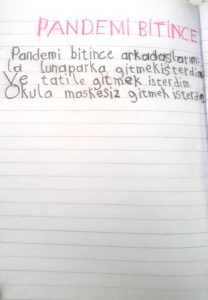 PANDEMİ BİTİNCE
Pandemi bitince arkadaşlarım
la lunaparka gitmek isterdim
Ve tatile gitmek isterdim.
Okula maskesiz gitmek isterdim